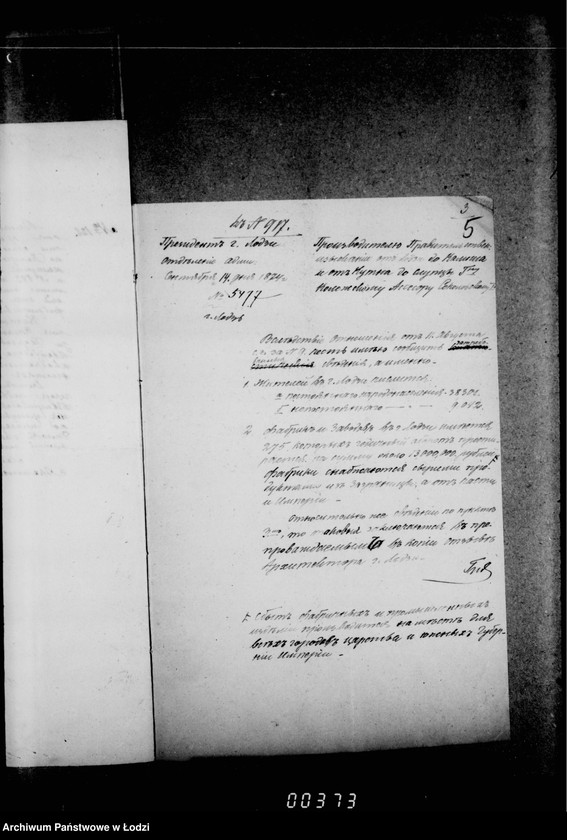 3
5
къ № 917.
Президентъ г. Лодзи
отдѣленіе адми.
Сентября 14 дня 1874 г.
№ 5477
г. Лодзь
Производителю Правительствен.
изысканія отъ Лодзи до Калиша
и отъ Кутна до Слупцы Гну
Коллежскому Ассесору
Вслѣдствіе отношенія отъ Августа
с.г. за № 9. честь имѣю сообщить
свѣдѣнія, а именно:
1. Жителей въ г. Лодзи числится
постояннаго народонаселенія - 38301.
непостояннаго - 9.042.
2. Фабрикъ и Заводовъ въ г. Лодзи имѣется
275 которыхъ годичный оборотъ прости-
рается на сумму около 13.000,000, рублей
фабрики снабжаются сырыми про-
дуктами изъ Заграницы, а отъ части
и Имперіи. -
Относительно же свѣдѣній по пункту
3му, то таковыя заключаются въ пре-
провождаемыхъ въ копіи отзывѣ
Архитектора г. Лодзи.
Сбытъ фабричныхъ и промышленныхъ
издѣлій производится на мѣстѣ для
всѣхъ городовъ Царства и южныхъ Губер-
ніи Имперіи. -
00373
Archiwum Państwowe w Łodzi